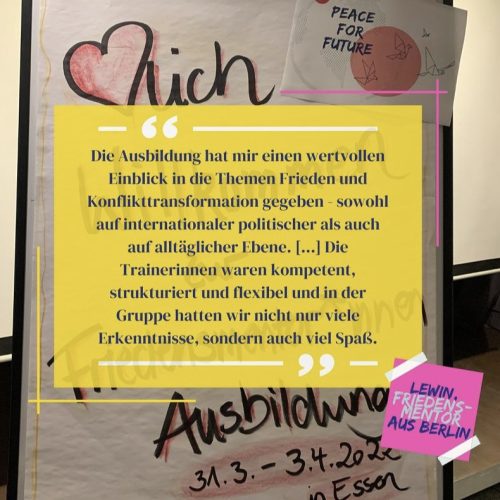 lich
PEACE
FOR
FUTURE
Die Ausbildung hat mir einen wertvollen
Einblick in die Themen Frieden und
Konflikttransformation gegeben - sowohl
auf internationaler politischer als auch
auf alltäglicher Ebene. [...] Die
Trainerinnen waren kompetent,
strukturiert und flexibel und in der
Gruppe hatten wir nicht nur viele
Erkenntnisse, sondern auch viel Spaß.
LEWIN,
FRIEDENS-
MENTOR
AUS BERLIN
Ausbildung
31.3. – 3.4.2022
in Essen